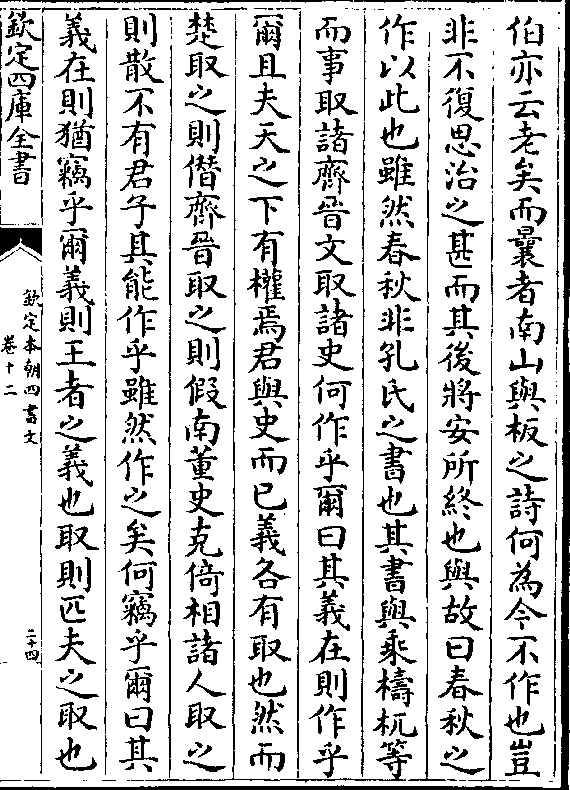 伯亦云老矣而曩者南山與板之詩何為今不作也豈
非不復思治之甚而其後將安所終也與故曰春秋之
作以此也雖然春秋非孔氏之書也其書與乘檮杌等
而事取諸齊晉文取諸史何作乎爾曰其義在則作乎
爾且夫天之下有權焉君與史而已義各有取也然而
楚取之則僭齊晉取之則假南董史克倚相諸人取之
則散不有君子其能作乎雖然作之矣何竊乎爾曰其
義在則猶竊乎爾義則王者之義也取則匹夫之取也
欽定四庫全書
欽定本朝四書文
卷十二
二十四